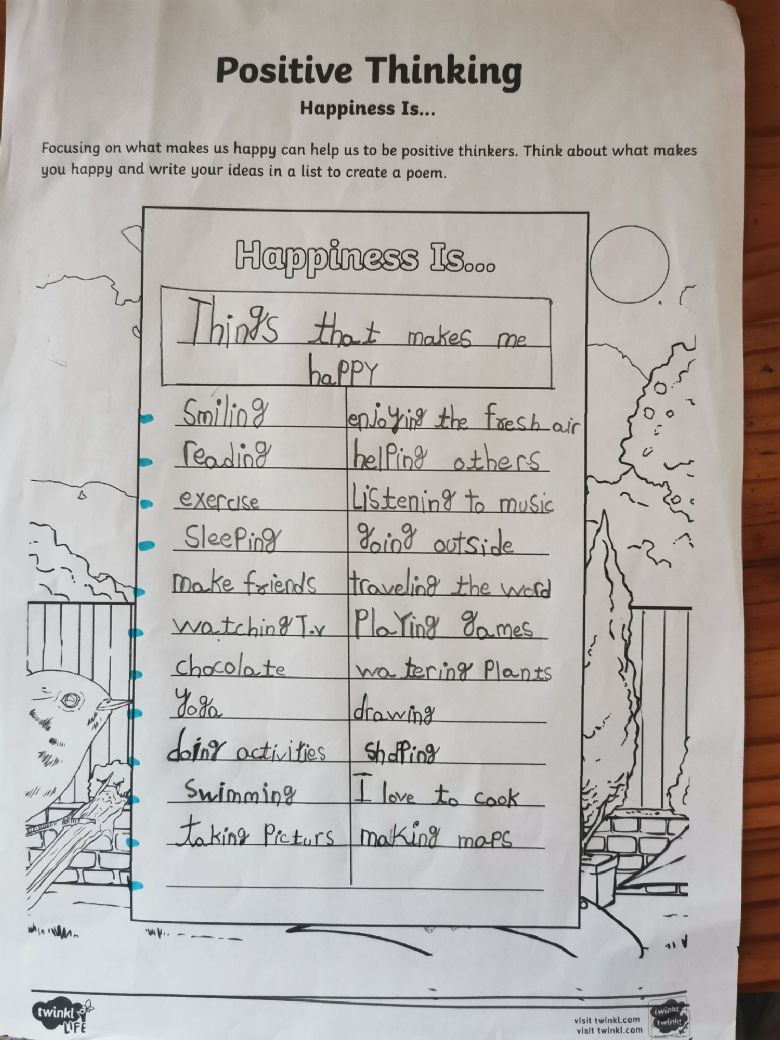 Positive Thinking
Happiness Is...
Focusing on what makes us happy can help us to be positive thinkers. Think about what makes
you happy and write your ideas in a list to create a poem.
Happiness Is...
Things that makes me
haPPY
Smiling
enjoying the fresh air
reading
helping others
exercise
Listening to music
Sleeping
going outside
make friends
traveling the word
watching T.v
Playing games
chocolate
watering Plants
Yoga
drawing
doing activities
shoping
Swimming
I love to cook
taking Picturs
making maps
twinkl
LIFE
visit twinkl.com
visit twinkl.com
twinkl
twinkl